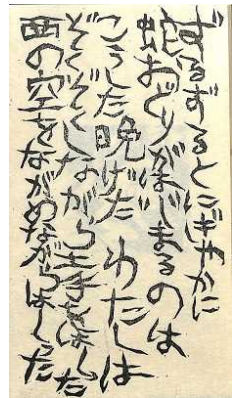 ずるずるとにぎやかに
蛇おどりがはじまるのは
こうした晩げだ わたしは
ぞくぞくしながら手をほした
西の空をながめながらほした